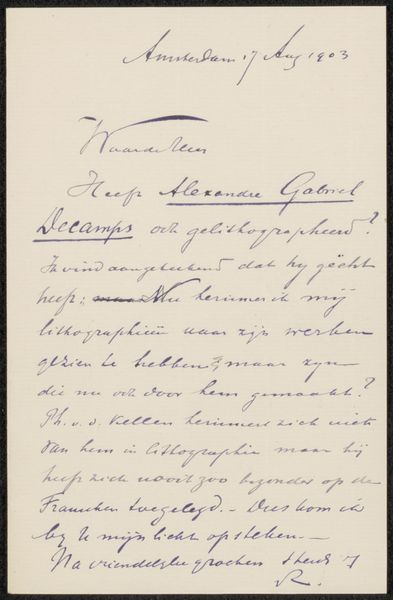 Amsterdam 17 Aug 1903
Waarde Heer
Heeft Alexandre Gabriel
Decamps ook gelithographeerd?
Ik vind aangeteekend dat hy geëtst
heeft: Nu herinner ik mij
lithographieën naar zijn werken
gezien te hebben, maar zyn
die nu ook door hem gemaakt?
Ph. v. d. Kellen herinnert zich niets
van hem in lithographie maar hij
heeft zich nooit zoo bezonder op de
Franschen toegelegd. – Dus kom ik
by U mijn licht opsteken. –
Na vriendelyke groeten
R.